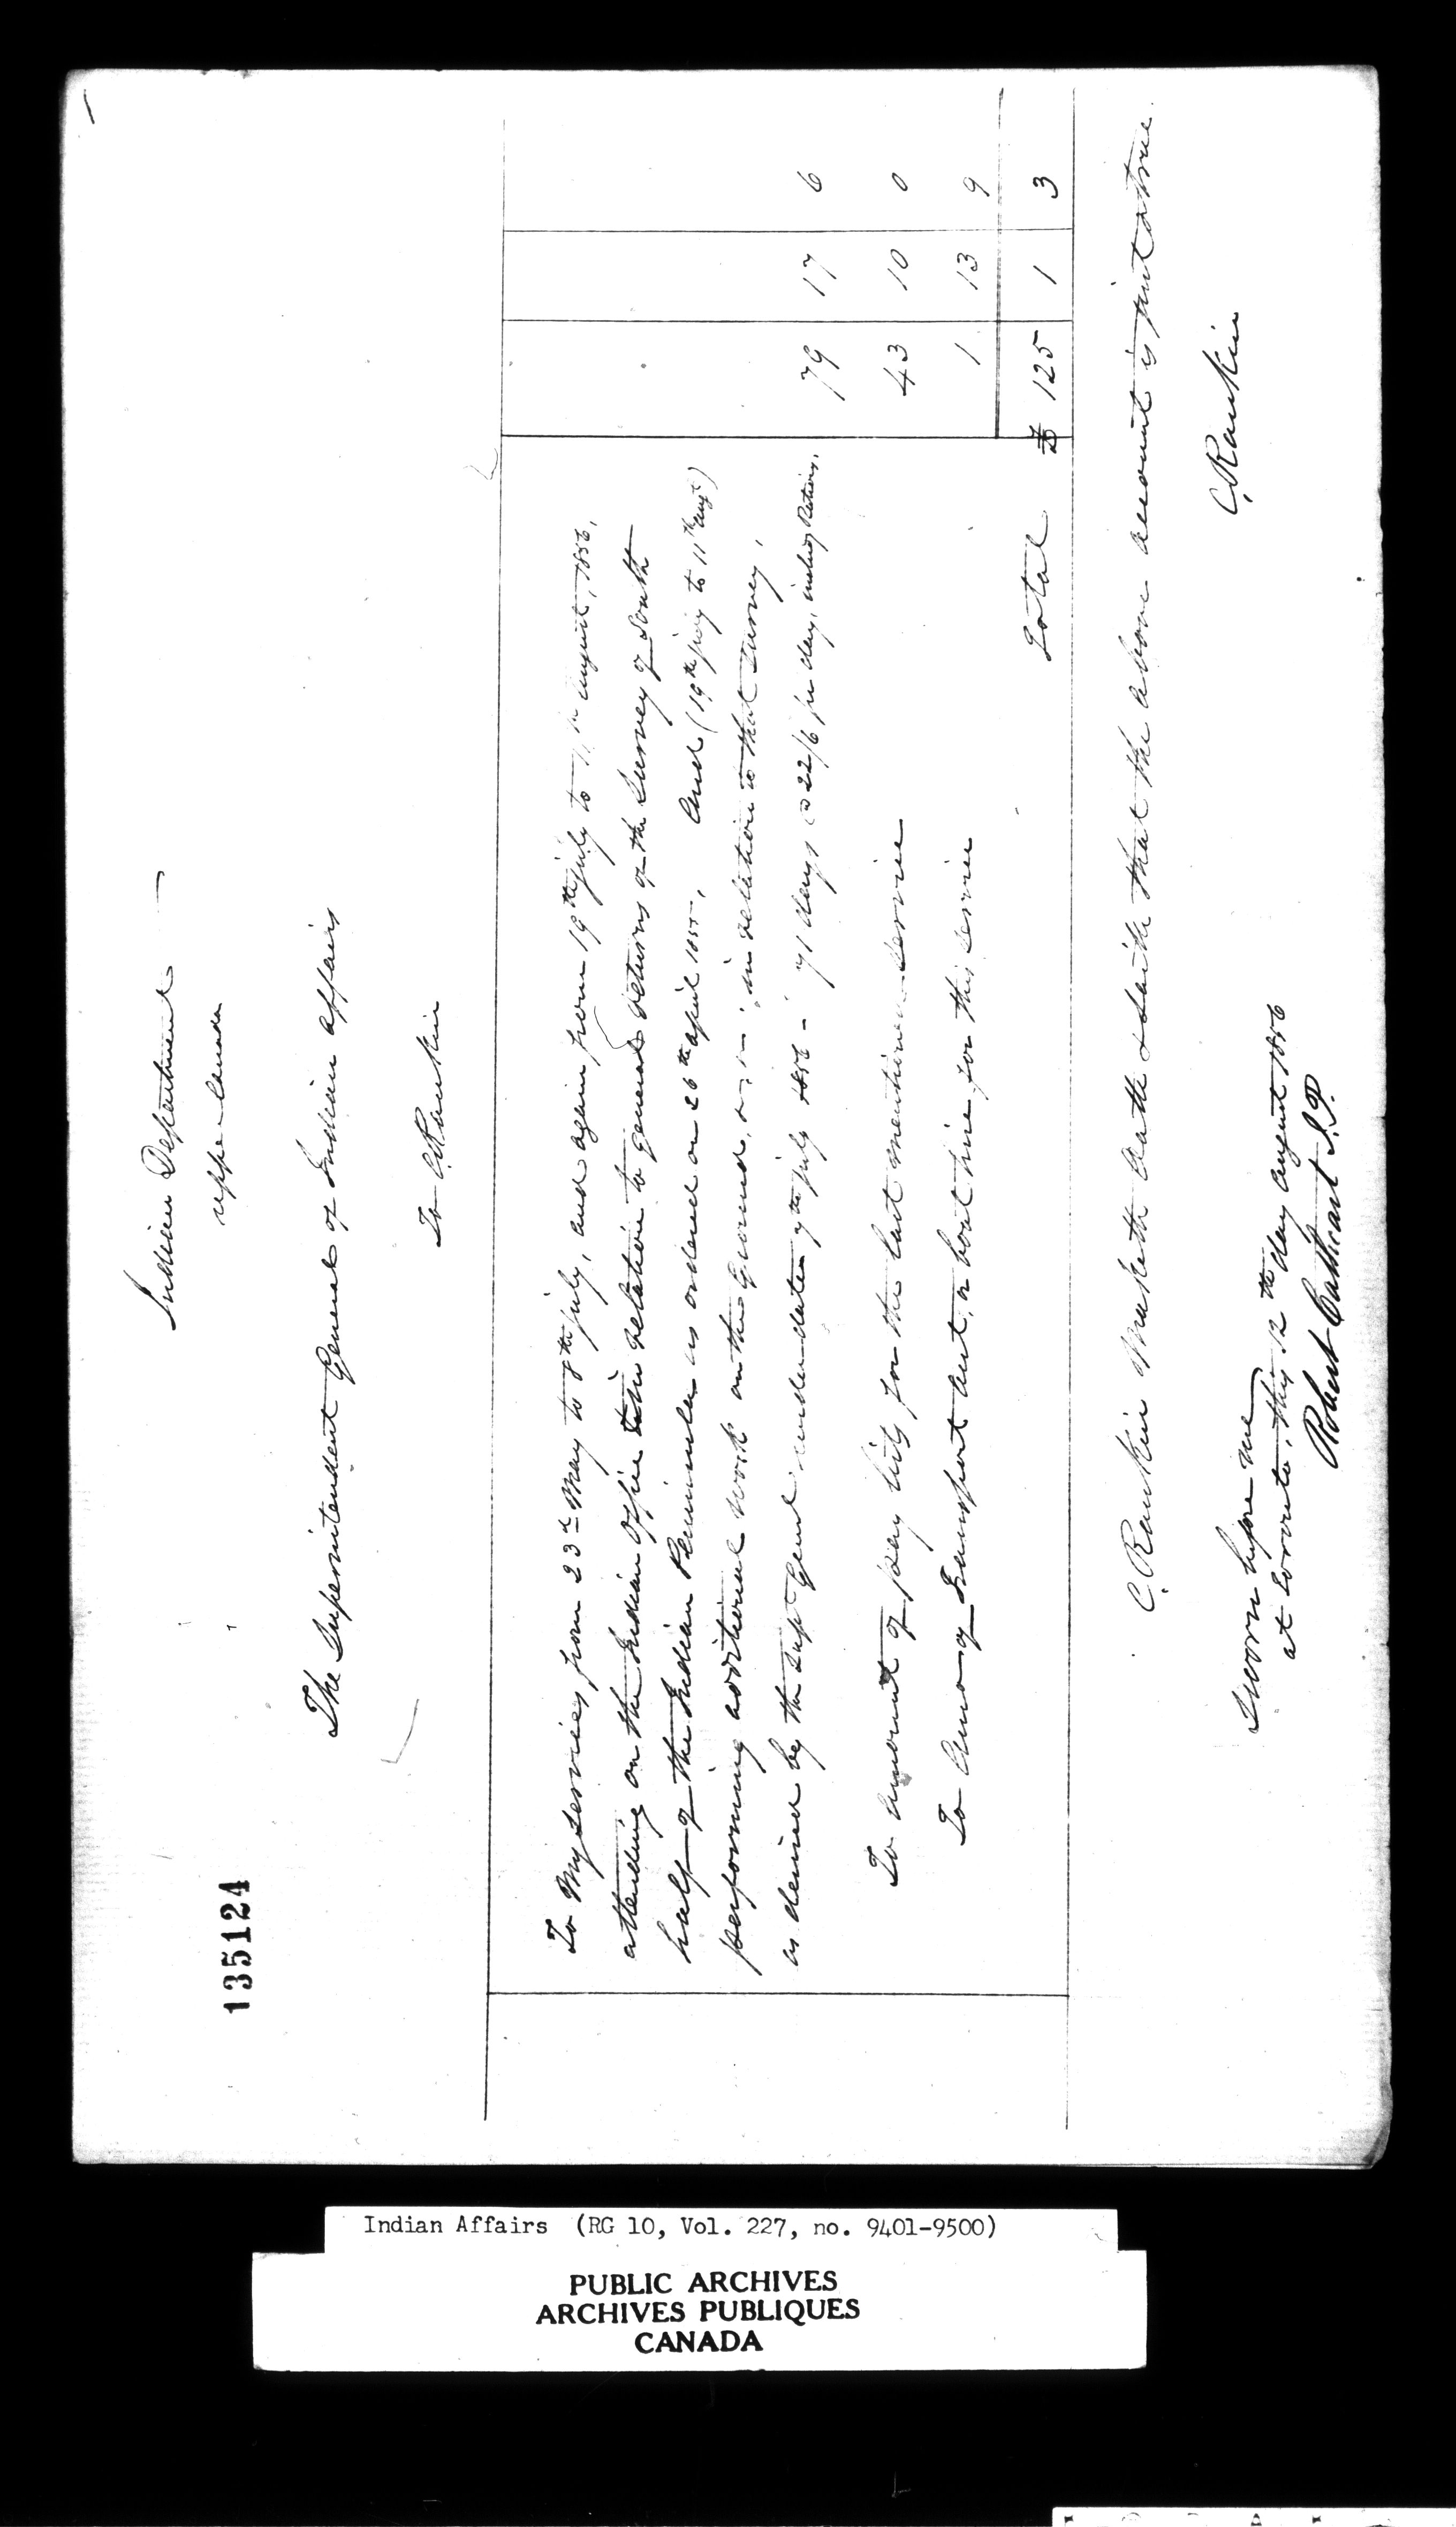 135124
Indian Department
upper Canada
The Superintendent General of Indian affairs
To C. Rankin
To My services, from 23d May to 8th july, and again from 19th july to 11th august, 1856,
attending on the Indian Office in relation to general returns of the Survey of South
half of the Indian Peninsula as ordered on 26th april 1855, And (19th july to 11th augt)
performing additional work on the Ground, in relation to that Survey,
as desired by the Supt Genl under date 7th july 1856 - 71 days @ 22/6 per day, includg Rations, 79 17 6
To amount of pay lists for the last mentioned service 43 10 0
To Amo of Transport act, & boat hire for this service 1 13 9
Total £ 125 1 3
C. Rankin Maketh Oath & saith that the above account is just & true.
C. Rankin
Sworn before me
at Toronto, this 12th day august 1856
Robert Cathcart J.P.
Indian Affairs (RG 10, Vol. 227, no. 9401-9500)
PUBLIC ARCHIVES
ARCHIVES PUBLIQUES
CANADA